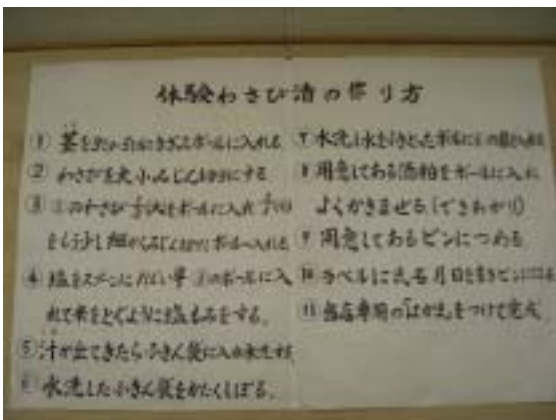 体験わさび漬の作り方
① 茎を きざみボールに入れる
② わさびを大小みじん切りにする
③ ②のわさび 大をボールに入れ
をもう少し細かくみじん切りにボールへ入れる
④ 塩をスプーンに 杯 ③のボールに入
れて米をとぐように塩もみをする。
⑤ 汁が出てきたらふきん袋に入れ水洗する
⑥ 水洗したふきん袋をかたくしぼる。
7 水洗し水をきったボールに の を入れる
8 用意してある酒粕をボールに入れ
よくかきまぜる(できあがり)
9 用意してあるビンにつめる
10 ラベルに氏名月日を書きビンにはる
11 当店専用の「はかま」をつけて完成